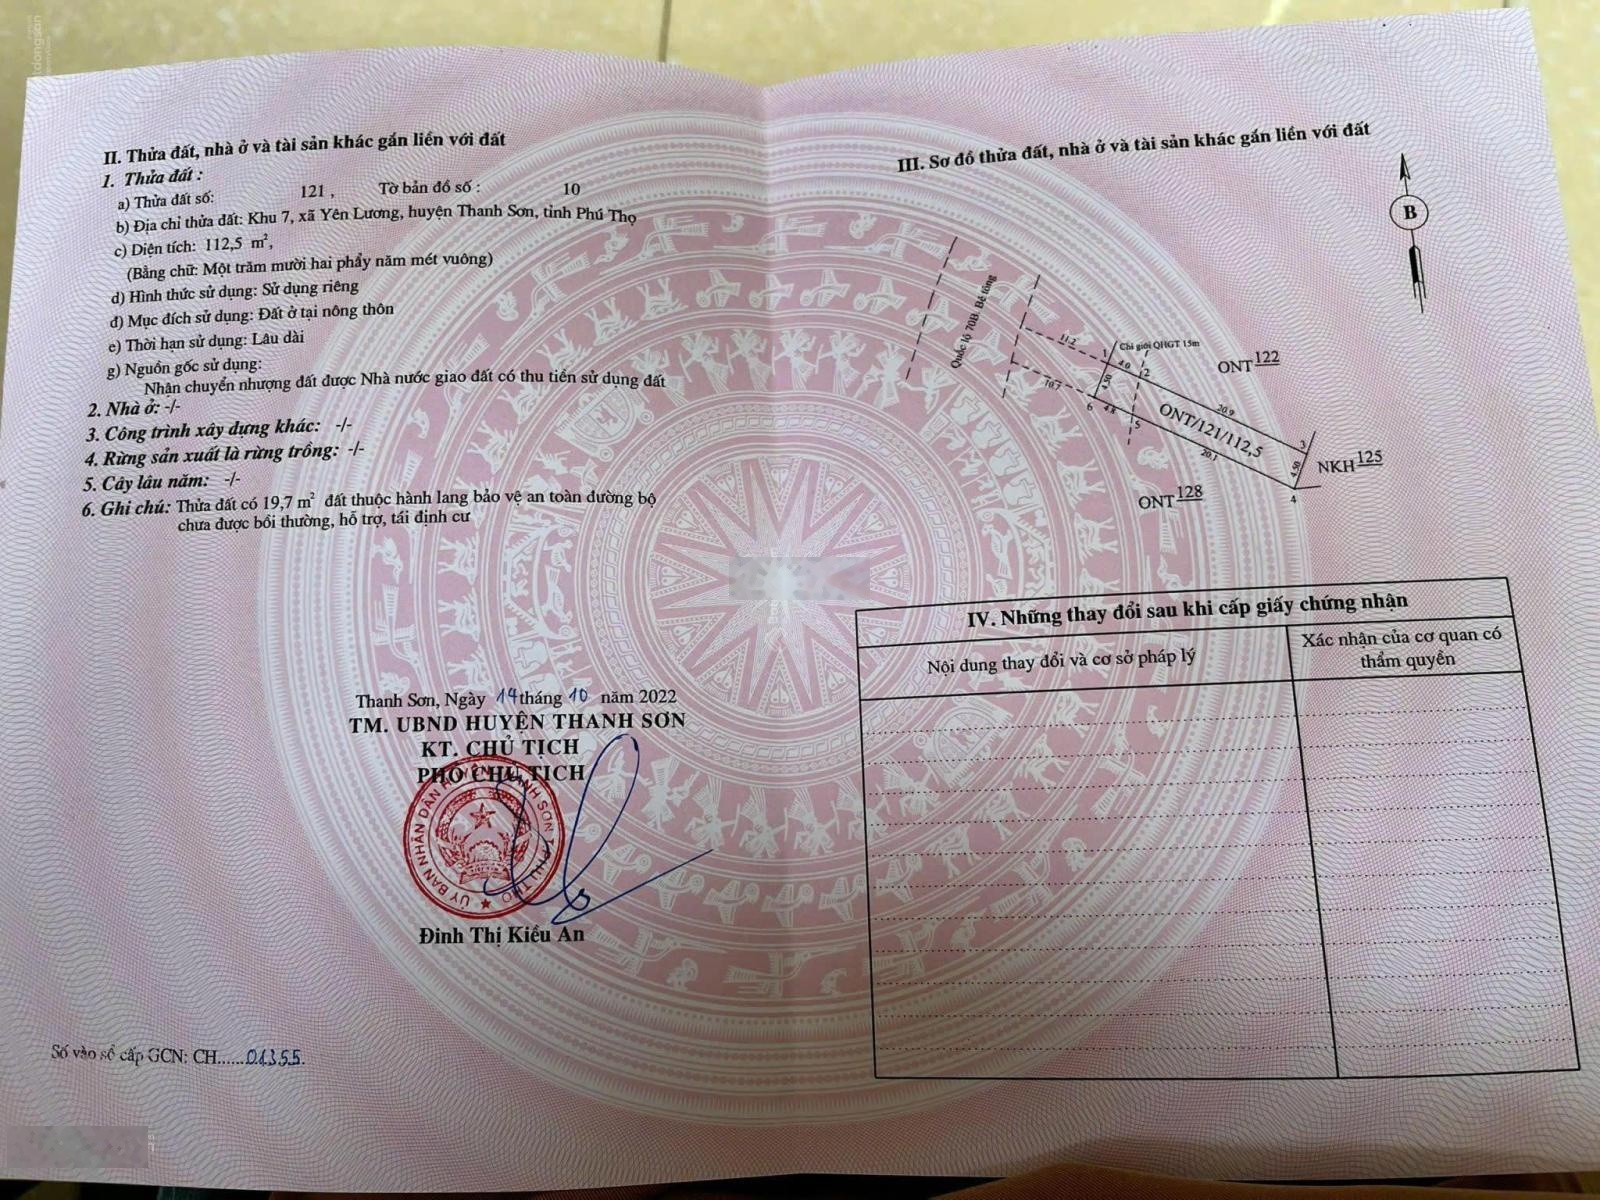 II. Thửa đất, nhà ở và tài sản khác gắn liền với đất
1. Thửa đất :
a) Thửa đất số: 121 , Tờ bản đồ số : 10
b) Địa chỉ thửa đất: Khu 7, xã Yên Lương, huyện Thanh Sơn, tỉnh Phú Thọ
c) Diện tích: 112,5 m²,
(Bằng chữ: Một trăm mười hai phẩy năm mét vuông)
d) Hình thức sử dụng: Sử dụng riêng
đ) Mục đích sử dụng: Đất ở tại nông thôn
e) Thời hạn sử dụng: Lâu dài
g) Nguồn gốc sử dụng:
Nhận chuyển nhượng đất được Nhà nước giao đất có thu tiền sử dụng đất
2. Nhà ở: -/-
3. Công trình xây dựng khác: -/-
4. Rừng sản xuất là rừng trồng: -/-
5. Cây lâu năm: -/-
6. Ghi chú: Thửa đất có 19,7 m² đất thuộc hành lang bảo vệ an toàn đường bộ
chưa được bồi thường, hỗ trợ, tái định cư
Thanh Sơn, Ngày 14 tháng 10 năm 2022
TM. UBND HUYỆN THANH SƠN
KT. CHỦ TỊCH
PHÓ CHỦ TỊCH
ỦY BAN NHÂN DÂN HUYỆN THANH SƠN T.PHÚ THỌ
Đinh Thị Kiều An
Số vào sổ cấp GCN: CH......01355.
III. Sơ đồ thửa đất, nhà ở và tài sản khác gắn liền với đất
B
Quốc lộ 70B. Bê tông
11.2
10.7
Chỉ giới QHGT 15m
1
4.0
2
4.50
6
4.8
5
20.9
ONT/121/112,5
20.1
3
4.50
4
ONT 122
NKH 125
ONT 128
IV. Những thay đổi sau khi cấp giấy chứng nhận
Nội dung thay đổi và cơ sở pháp lý
Xác nhận của cơ quan có
thẩm quyền